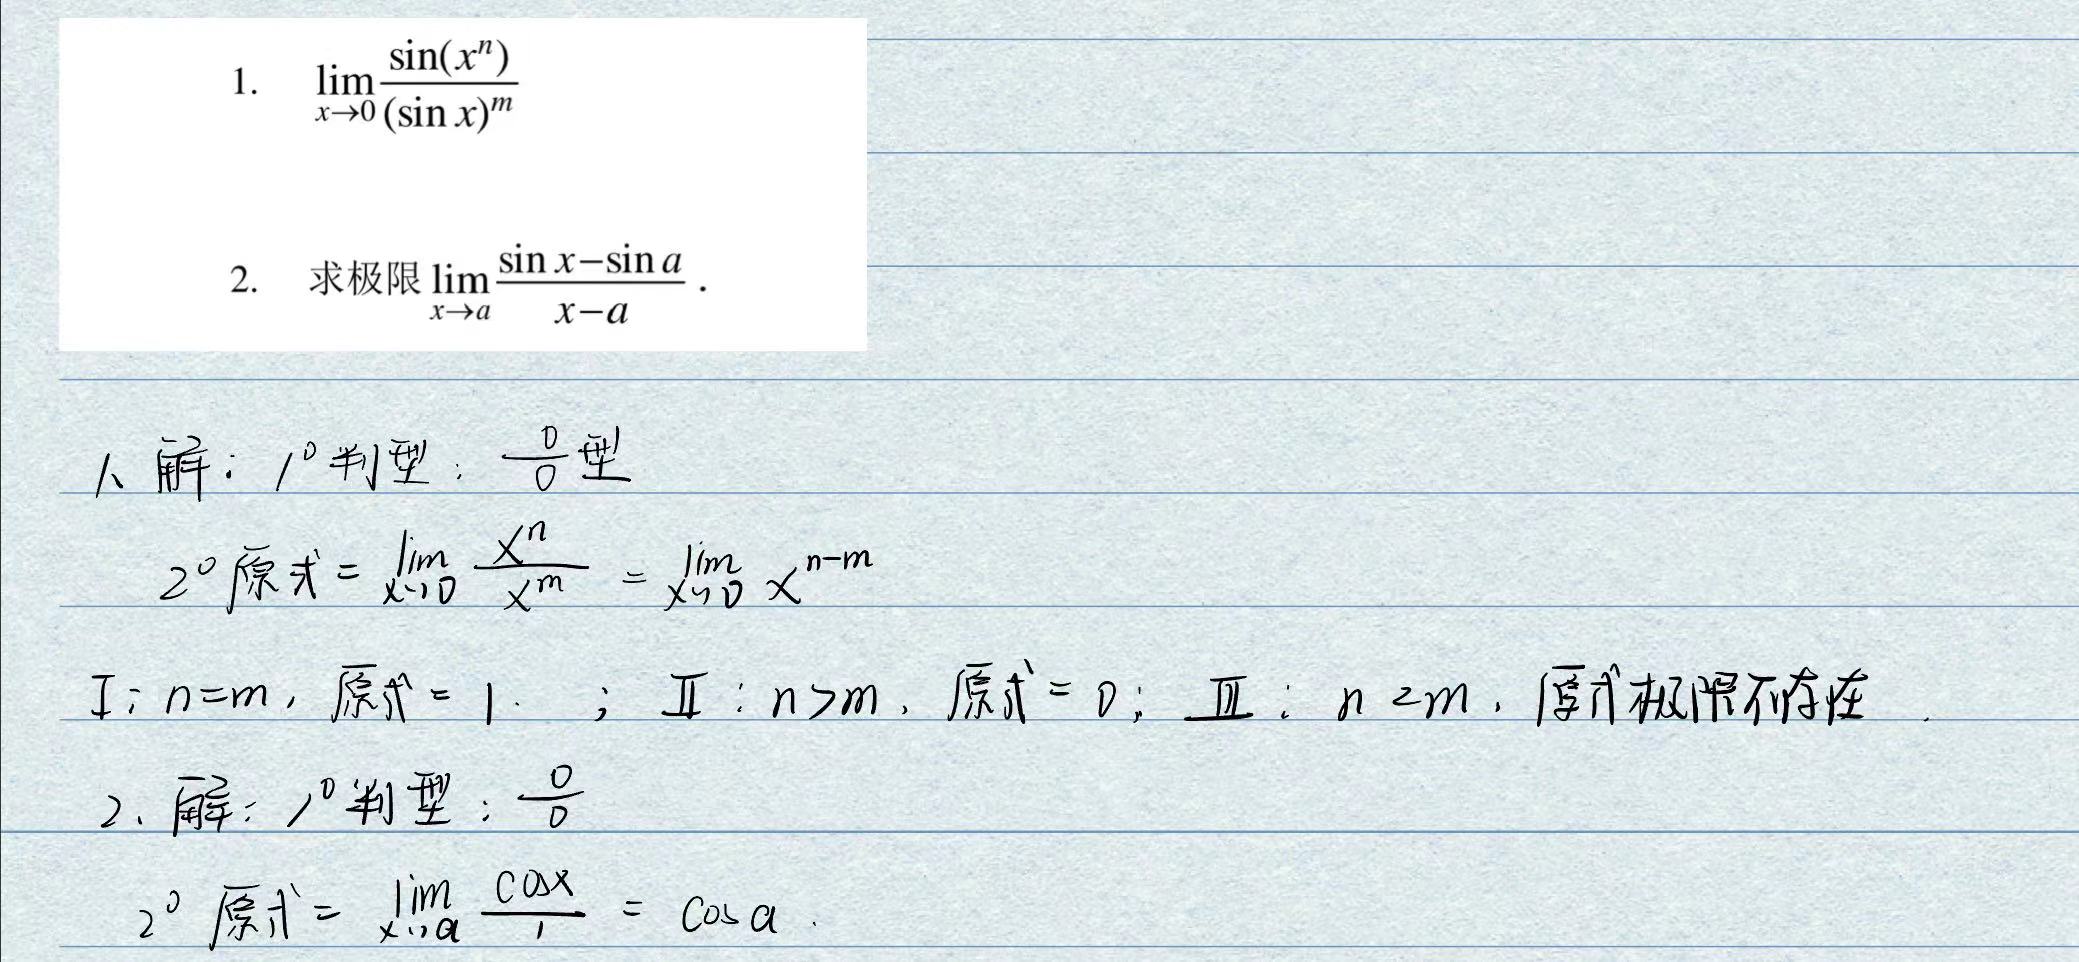 1. lim x→0 sin(xⁿ)/(sin x)ᵐ
2. 求极限 lim x→a (sin x−sin a)/(x−a) .
1、解：1⁰判型：0/0型
2⁰原式 = lim x→0 xⁿ/xᵐ = lim x→0 xⁿ⁻ᵐ
I：n=m，原式=1. ；II：n>m，原式=0；III：n<m，原式极限不存在.
2、解：1⁰判型：0/0
2⁰ 原式 = lim x→a cosx/1 = cos a .